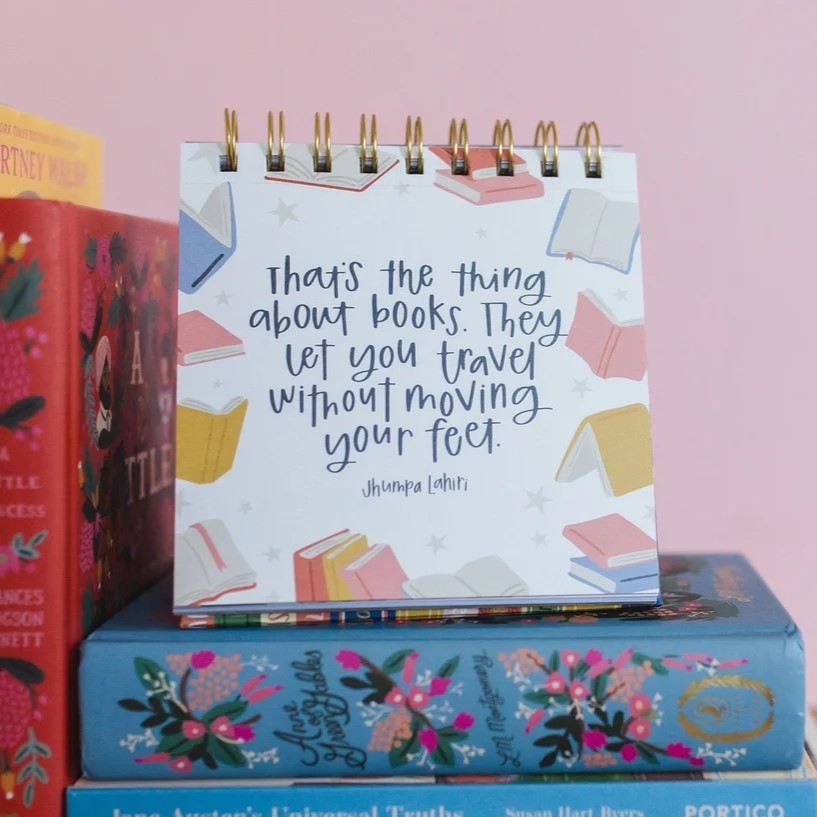 That's the thing
about books. They
let you travel
without moving
your feet.
Jhumpa Lahiri
RTNEY
A
TTLE
A
TTLE
NCESS
ANCES
DGSON
NETT
Anne
of
Green Gables
L.M. Montgomery
Jane Austen's Universal Truths Susan Hart Byers PORTICO